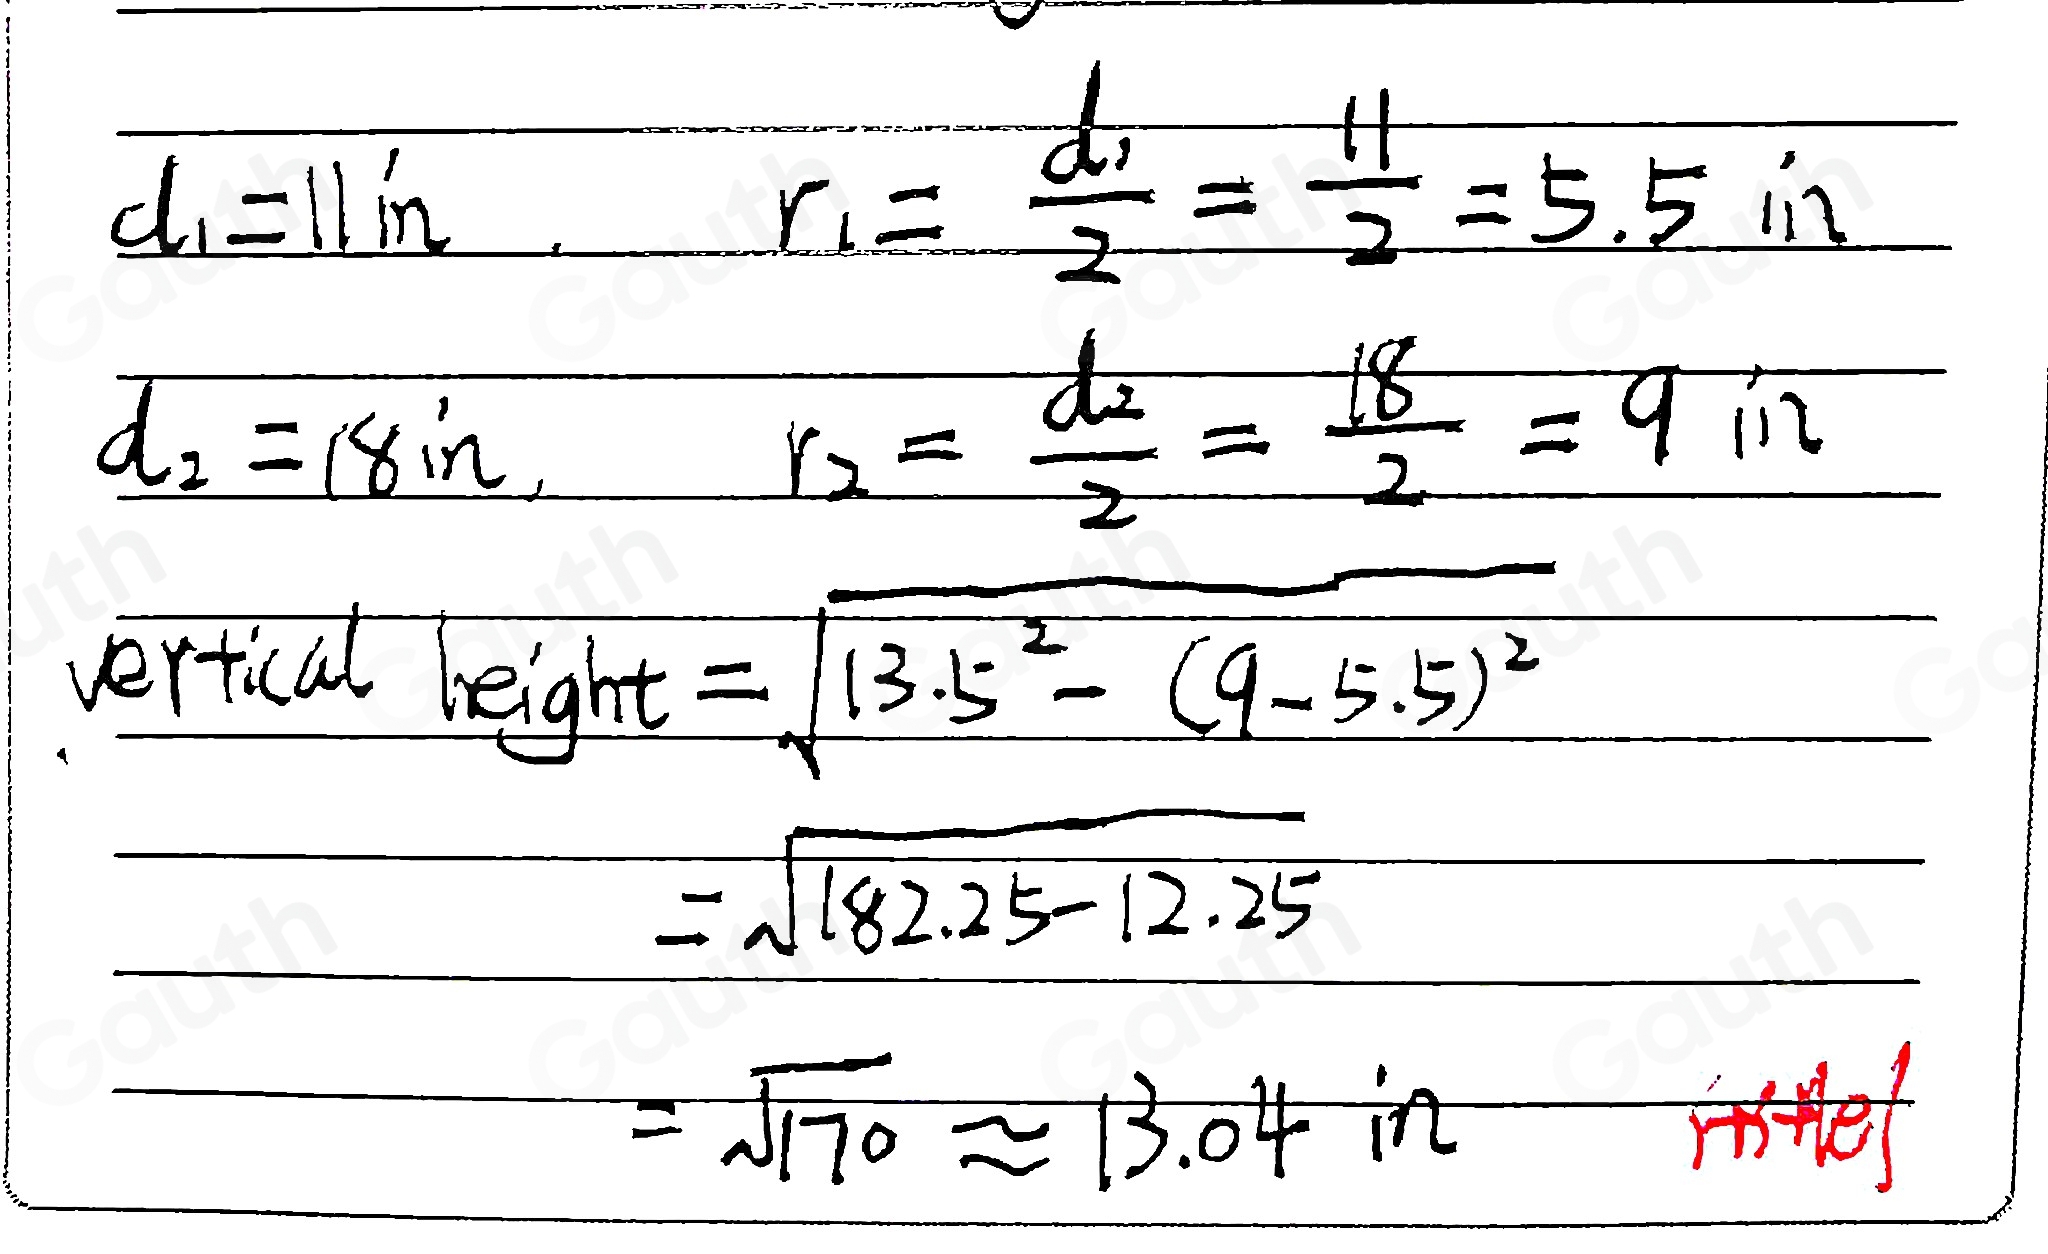 d₁ = 11 in, r₁ = d₁/2 = 11/2 = 5.5 in
d₂ = 18 in, r₂ = d₂/2 = 18/2 = 9 in
vertical height = √(13.5² - (9 - 5.5)²)
= √(182.25 - 12.25)
= √170 ≈ 13.04 in
Gauth